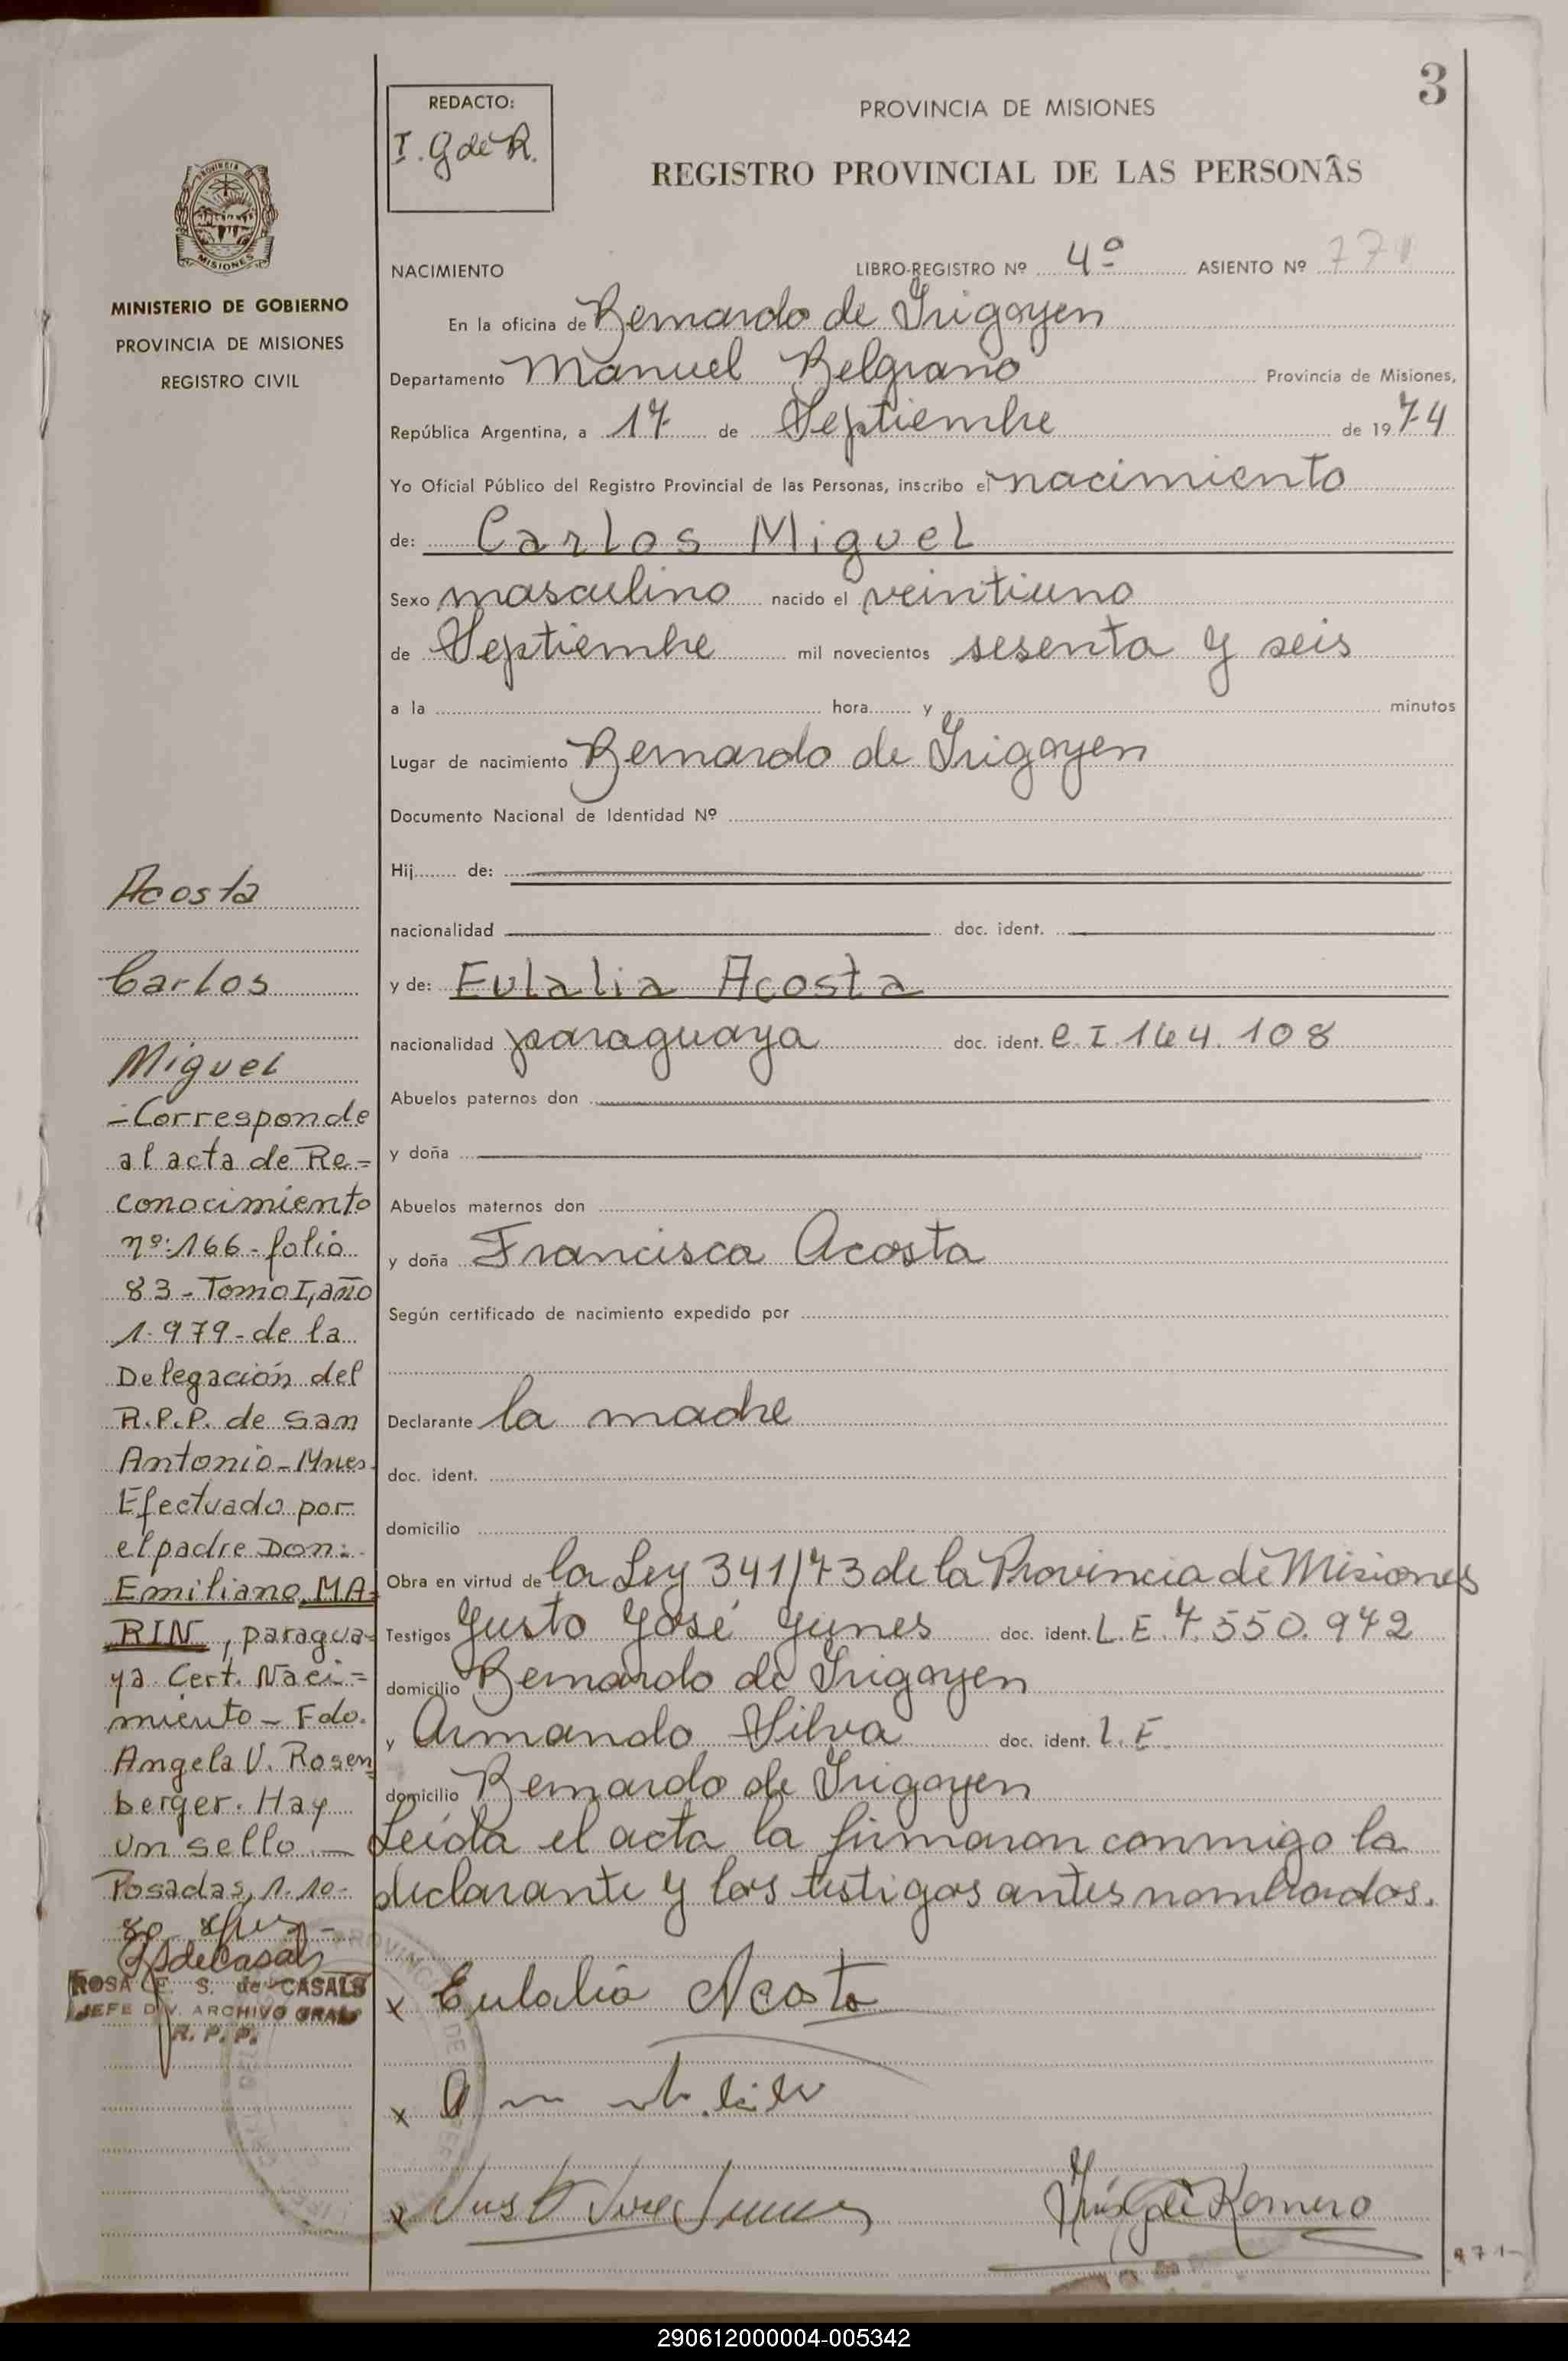 3
REDACTO:
I. G de R.
PROVINCIA DE MISIONES
REGISTRO PROVINCIAL DE LAS PERSONAS
PROVINCIA D
MISIONES
MINISTERIO DE GOBIERNO
PROVINCIA DE MISIONES
REGISTRO CIVIL
NACIMIENTO LIBRO-REGISTRO Nº 4º ASIENTO Nº
En la oficina de Bernardo de Irigoyen
Departamento Manuel Belgrano Provincia de Misiones,
República Argentina, a 17 de Septiembre de 1974
Yo Oficial Público del Registro Provincial de las Personas, inscribo el nacimiento
de: Carlos Miguel
Sexo masculino nacido el veintiuno
de Septiembre mil novecientos sesenta y seis
a la hora y minutos
Lugar de nacimiento Bernardo de Irigoyen
Documento Nacional de Identidad Nº
Hij de:
nacionalidad doc. ident.
y de: Eulalia Acosta
nacionalidad paraguaya doc. ident. C. I. 164. 108
Abuelos paternos don
y doña
Abuelos maternos don
y doña Francisca Acosta
Según certificado de nacimiento expedido por
Declarante la madre
doc. ident.
domicilio
Obra en virtud de la Ley 341/73 de la Provincia de Misiones
Testigos Justo José Junes doc. ident. L.E. 7.550.972
domicilio Bernardo de Irigoyen
y Armando Silva doc. ident. L.E.
domicilio Bernardo de Irigoyen
Leida el acta la firmaron conmigo la
declarante y los testigos antes nombrados.
x Eulalia Acosta
x
x Justo Jose Junes
de Romero
Acosta
Carlos
Miguel
-Corresponde
al acta de Re=
conocimiento
nº:166-folio
83-Tomo I, año
1.979-de la
Delegación del
R.P.P. de San
Antonio-Mnes.
Efectuado por
el padre Don:
Emiliano MA=
RIN, paragua=
ya Cert. Naci=
miento - Fdo.
Angela V. Rosen=
berger. Hay
un sello.-
Posadas, 1.10-
80
ROSA E. S. de CASALS
JEFE DIV. ARCHIVO GRAL.
R. P. P.
290612000004-005342